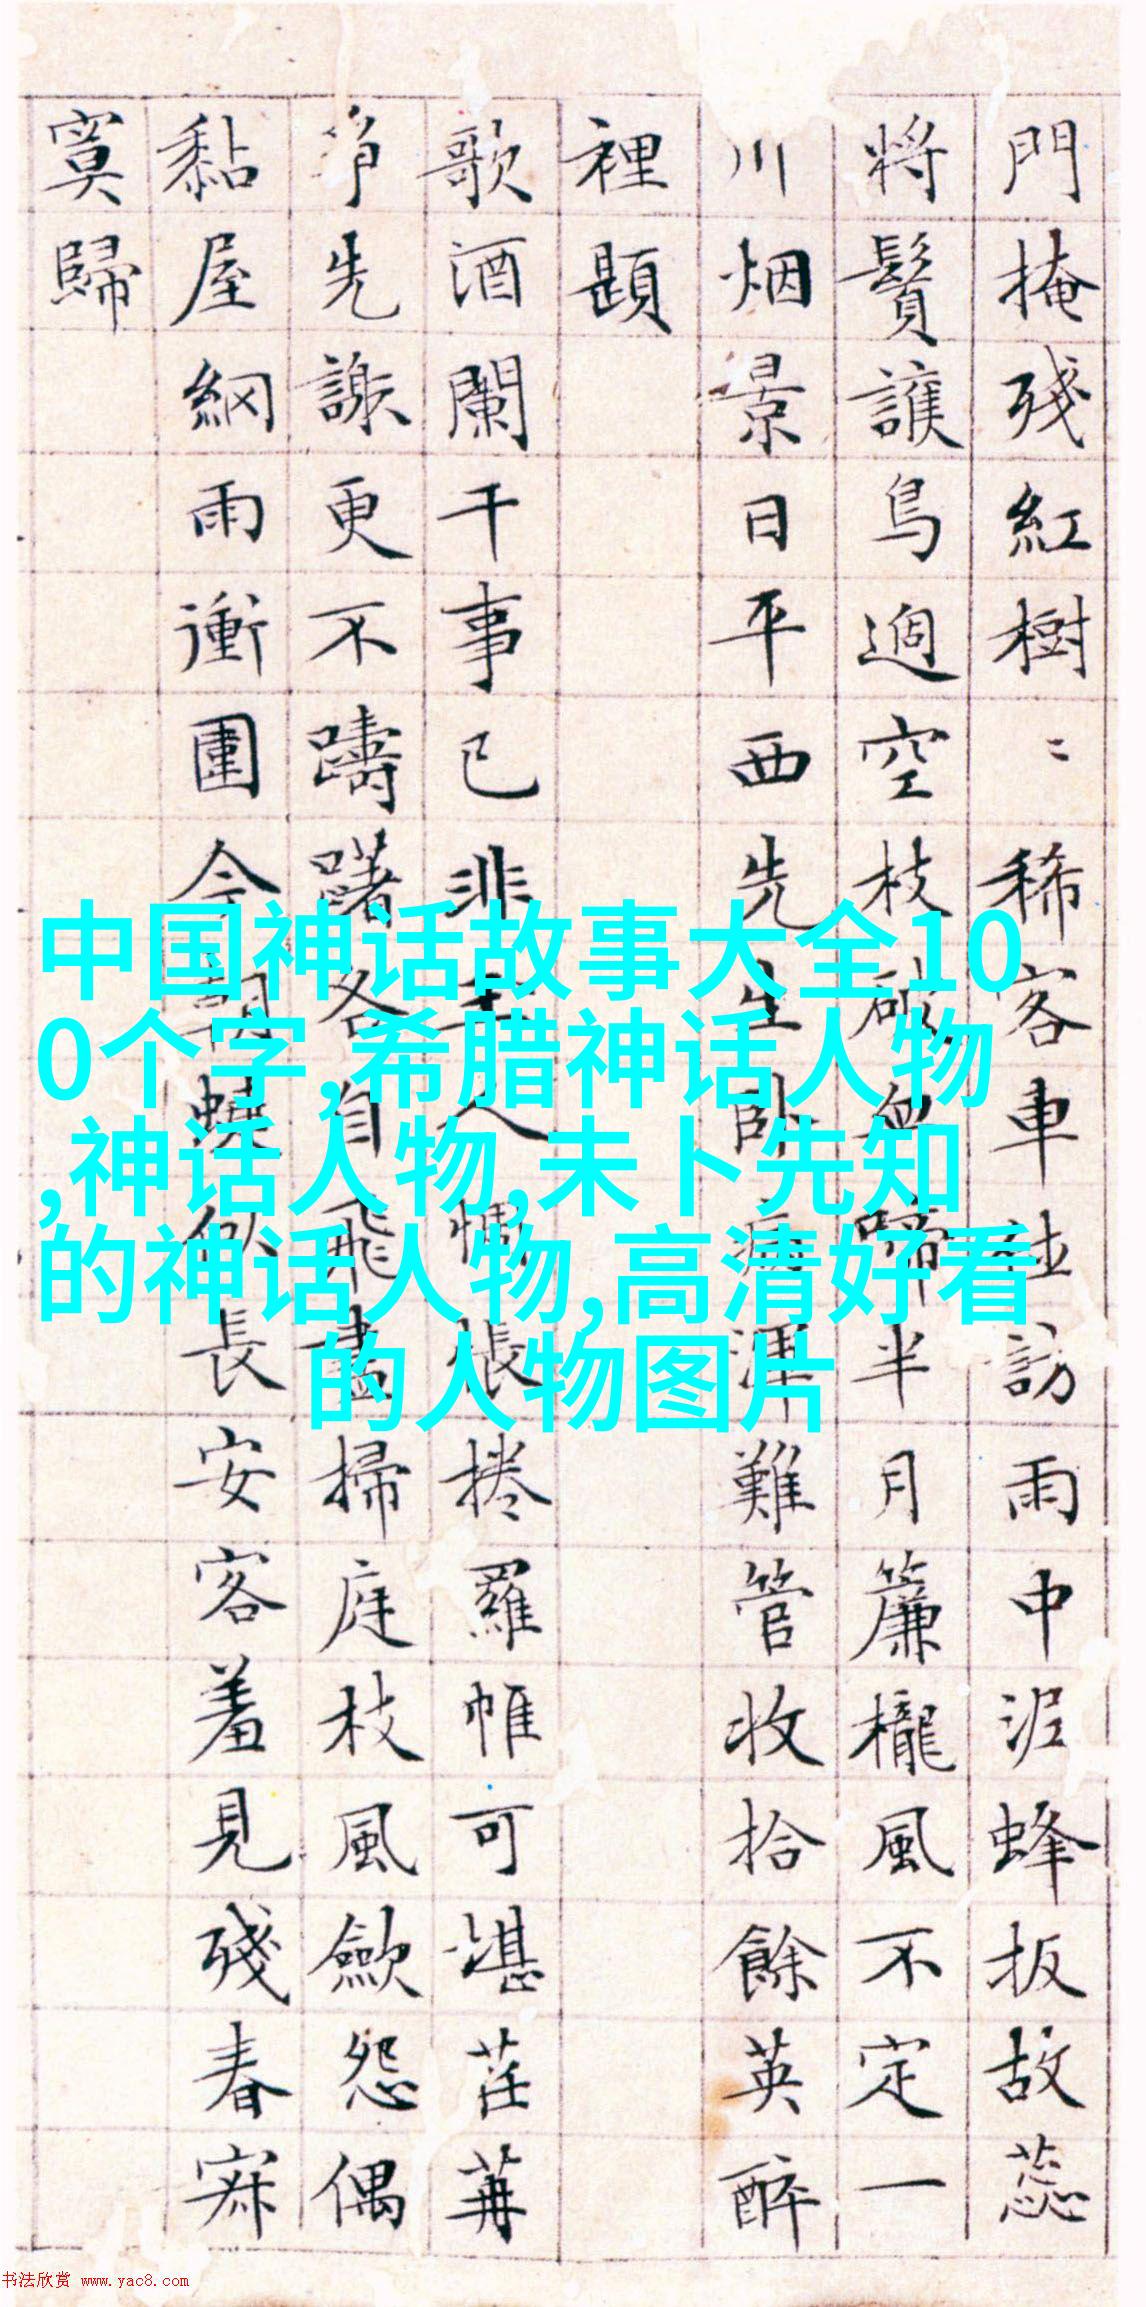 門掩殘紅樹〻稀客車枉訪雨中泥蜂扳故蕊
將鬚護鳥過空枝破血啼半月簾櫳風不定一
川烟景日平西先生臥病渾難管收拾餘英醉
裡題
歌酒闌干事已非主人惆悵捲羅帷可堪荏苒
爭先謝更不躊躇各自飛盡掃庭枝風歛怨偶
黏屋網雨衝圍今朝似長安客羞見殘春寂
寞歸
中国神话故事大全10
0个字,希腊神话人物
,神话人物,未卜先知
的神话人物,高清好看
的人物图片
书法欣赏 www.yac8.com